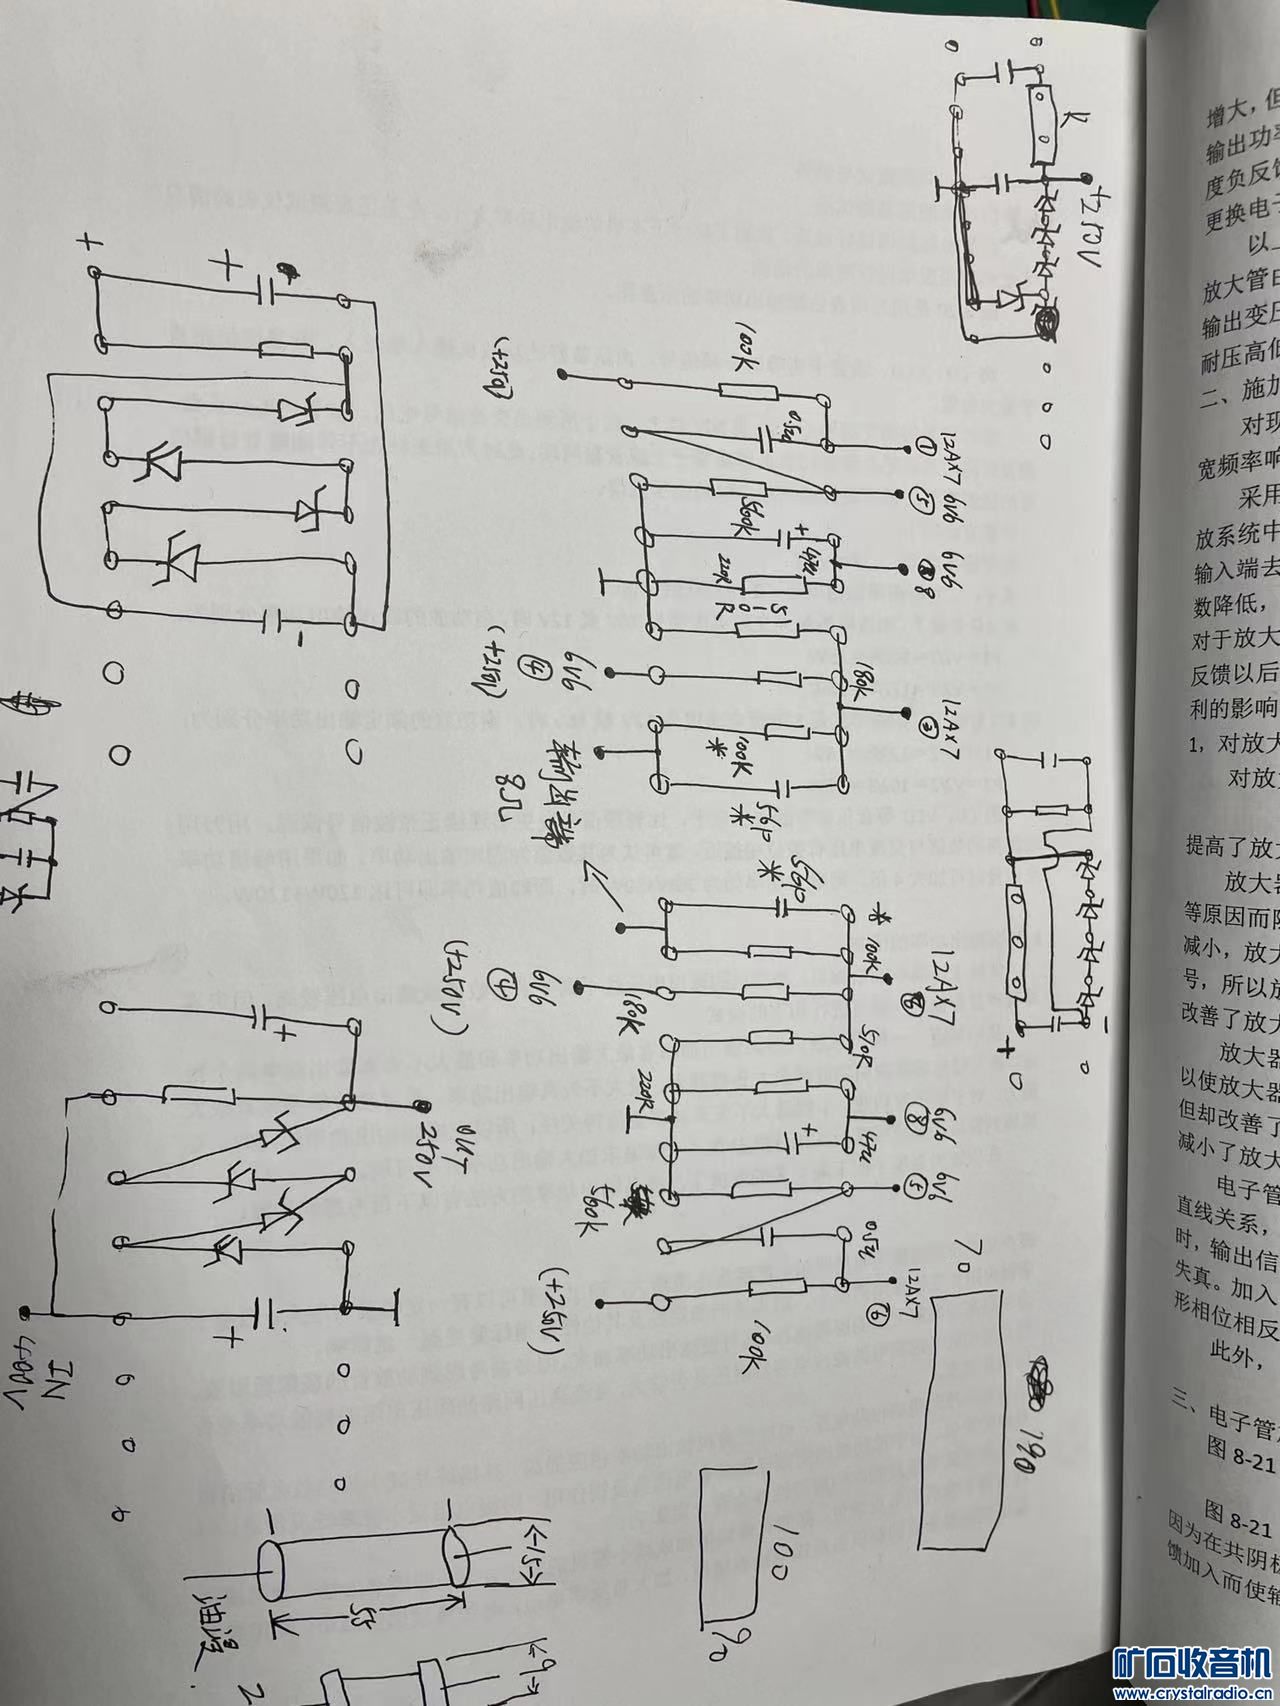 R
+250V
100K
(+250V)
0.52
①
12AX7
⑤
6V6
560K
+
47u
220R
⑧ 8
6V6
510
R
180K
③
12AX7
④
6V6
(+250V)
100K
*
56p
*
输出端
8Ω
56p
*
* 100K
12AX7
510R
180K
6V6
④
(+250V)
220R
+
47u
⑧
6V6
⑤
6V6
560K
⑥
12AX7
100K
(+250V)
+
+
-
-
+
+
OUT
250V
+
IN
400V
70
190
100
90
←15→
55
油浸
←9→
2
增大，但
输出功率
度负反馈
更换电子
以上
放大管
输出变压
耐压高低
二、施加
对现
宽频率响
采用
放系统中
输入端去
数降低，
对于放大
反馈以后
利的影响
1，对放大
对放大
提高了放大
放大器
等原因而降
减小，放大
号，所以放
改善了放大
放大器
以使放大器
但却改善了
减小了放大
电子管
直线关系，
时，输出信
失真。加入
形相位相反
此外，
三、电子管放
图 8-21
图 8-21
因为在共阴极
馈加入而使输
矿石收音机
www.crystalradio.cn